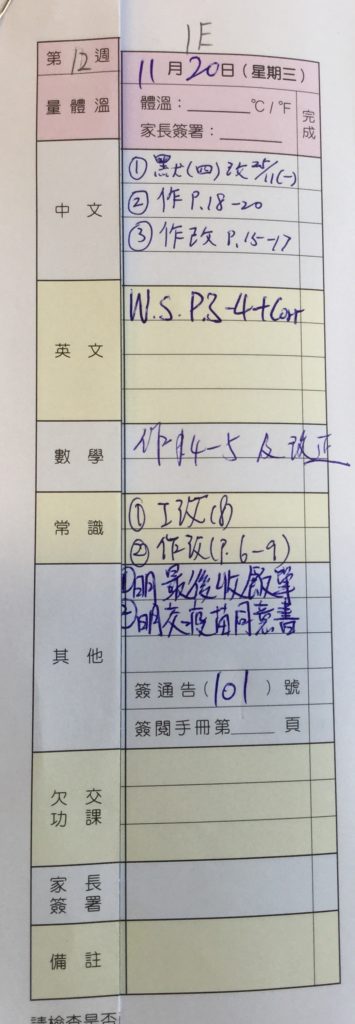 1E
第 12 週 11 月 20 日 (星期三)
量 體 溫
體溫：______ °C / °F
家長簽署：______
完成
中 文
① 默(四)改 25/11(一)
② 作 P.18-20
③ 作改 P.15-17
英 文
W.S. P.3-4+Corr
數 學
作 P.4-5 及 改正
常 識
① 工改(8)
② 作改(P.6-9)
其 他
①明最後收飯單
②明交疫苗同意書
簽通告(101)號
簽閱手冊第____ 頁
欠 交
功 課
家 長
簽 署
備 註
請檢查是否